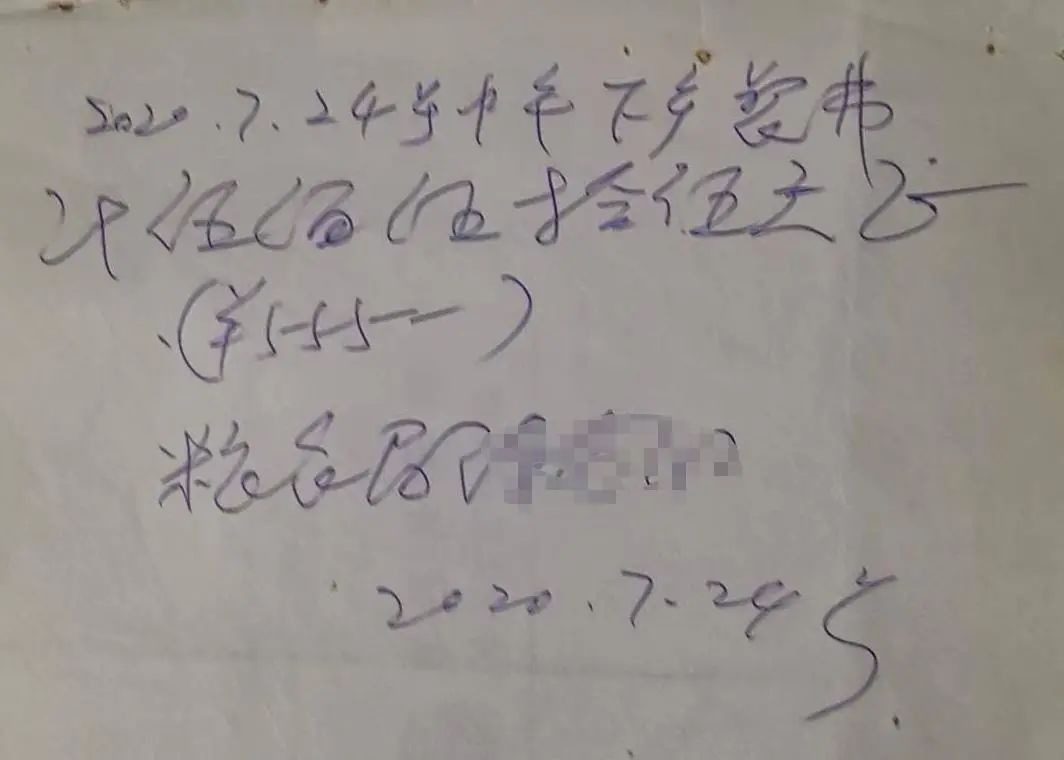 2020.7.24号中午下乡餐费
计伍佰伍拾伍元正
(¥555——)
粮食局
2020.7.24号